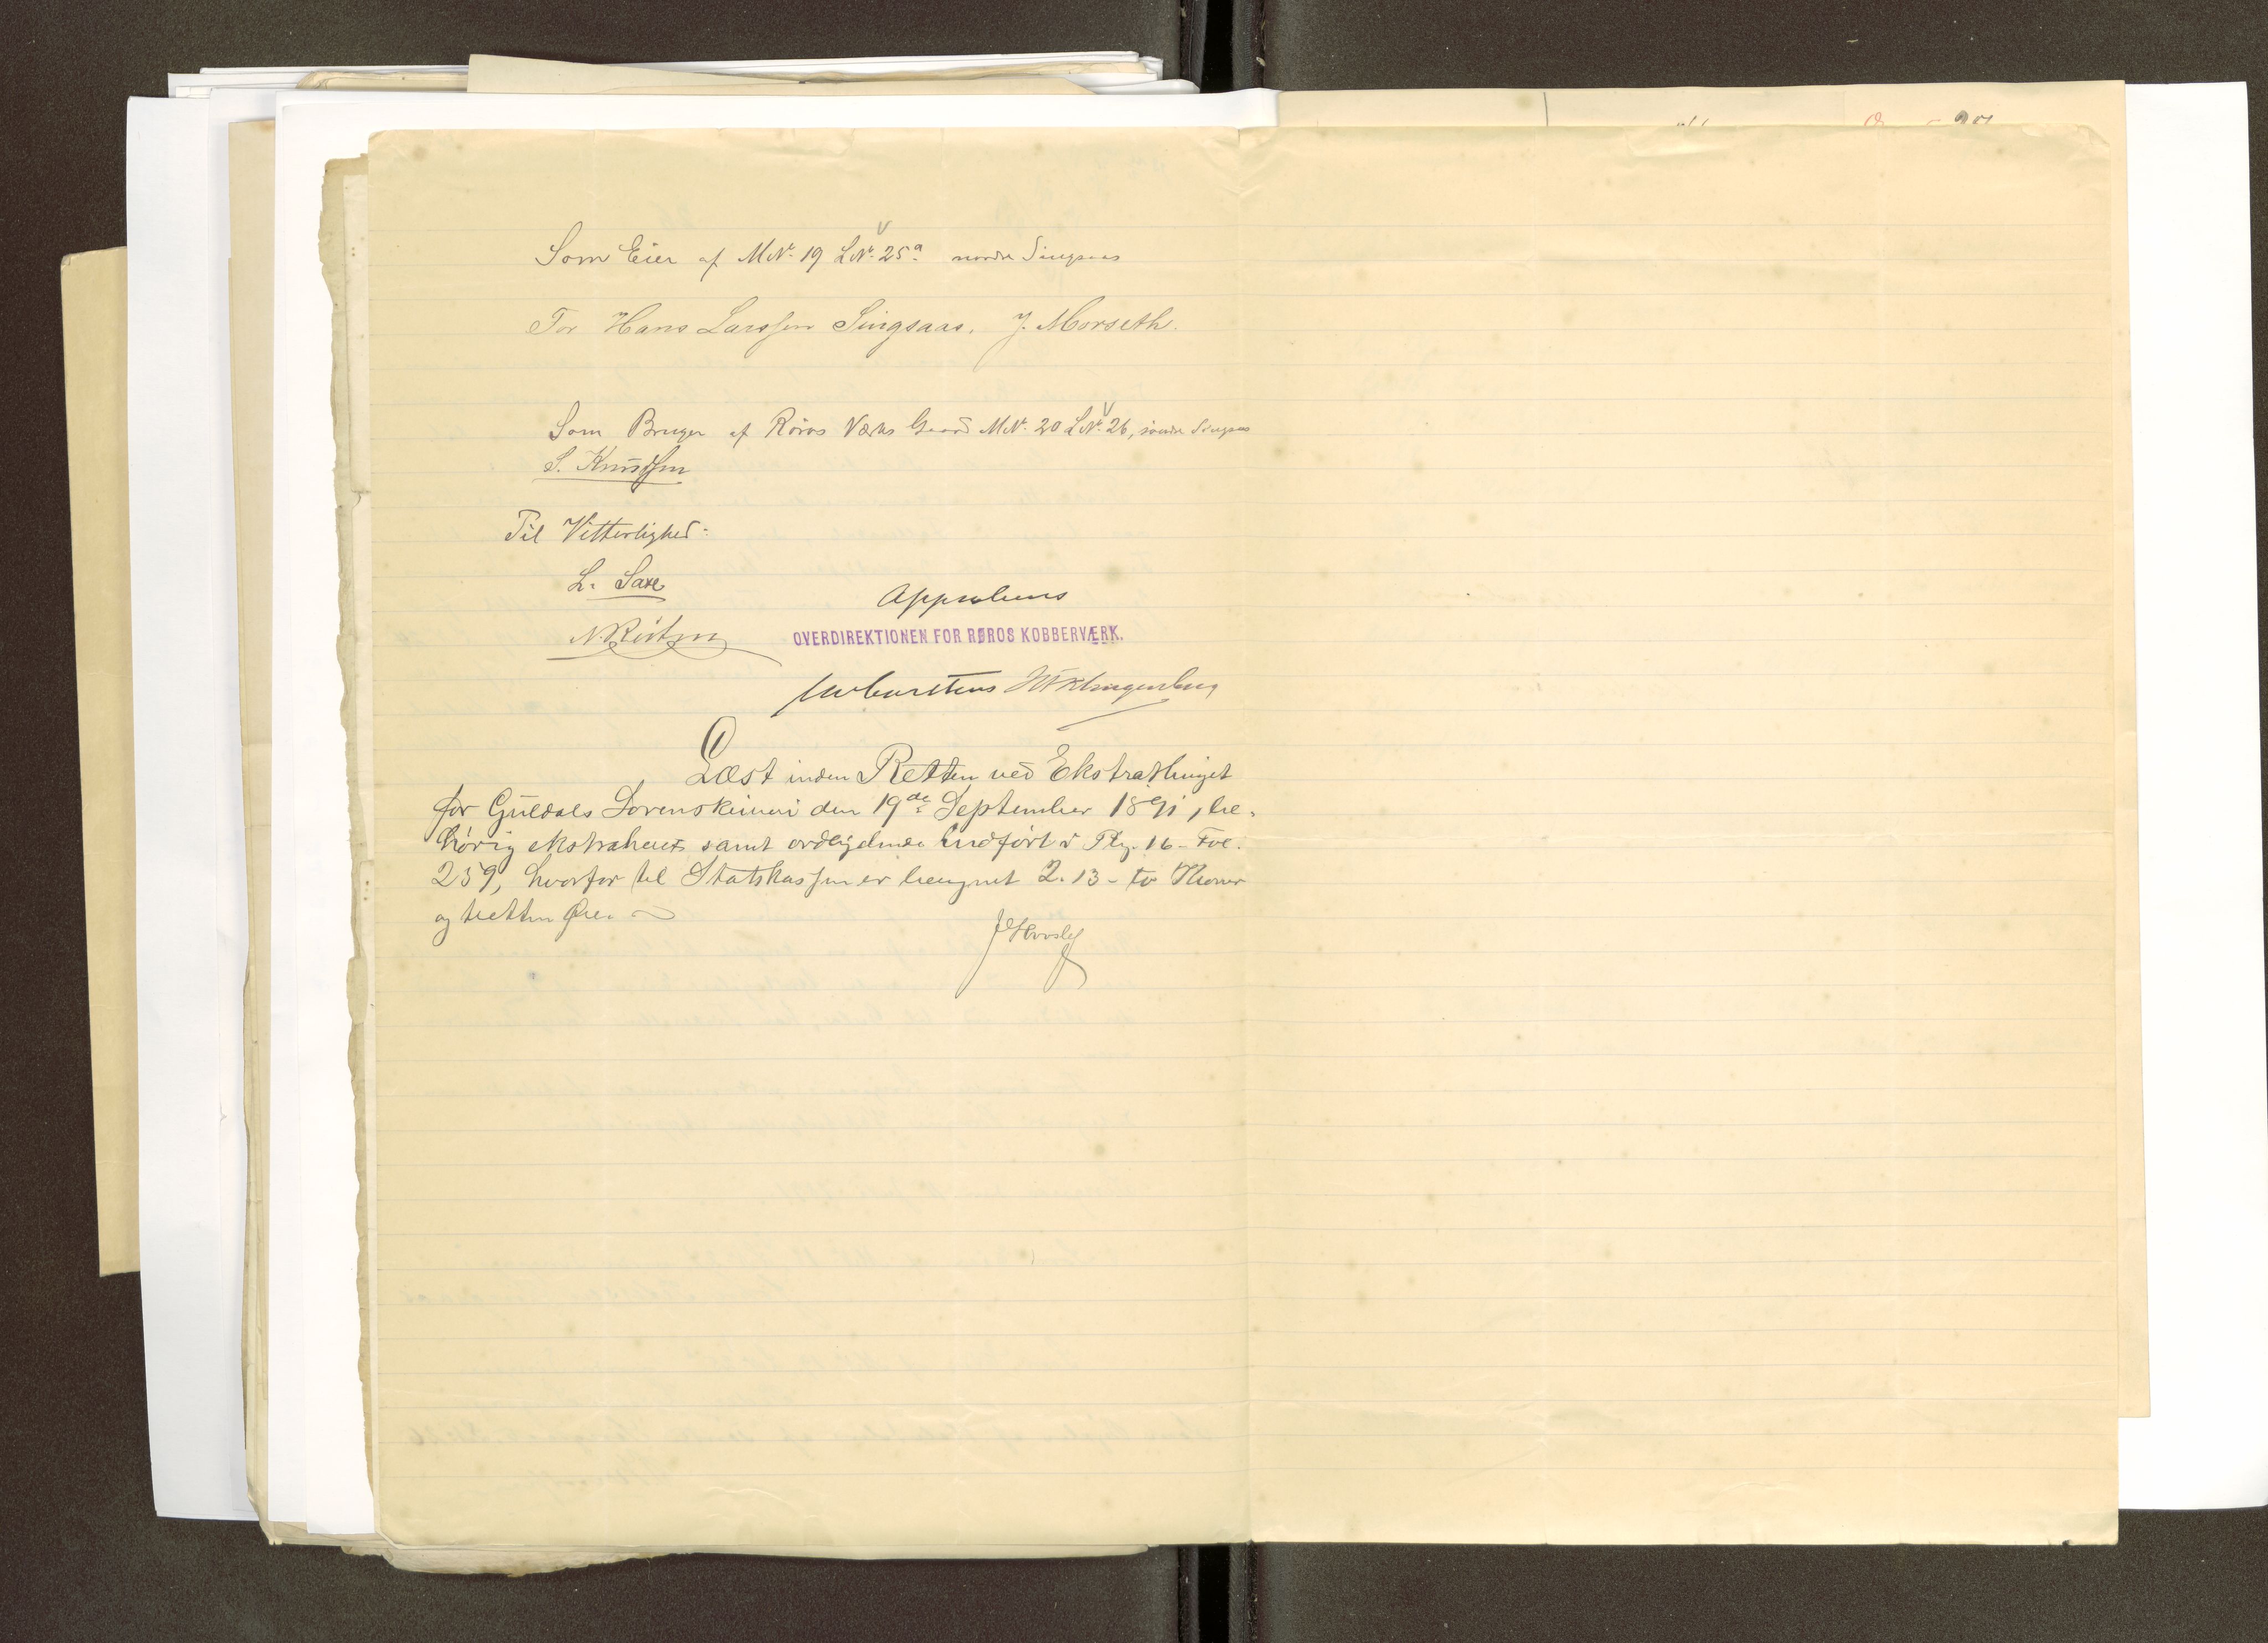 Som Eier af MNr. 19 LNr. 25a. nordre Singsaas
For Hans Larssen Singsaas. J. Morseth.
Som Bruger af Röros Værks Gaard MNr. 20 LNr. 26, søndre Singsaas
S. Knudsen
Til Vitterlighed:
L. Saxe
Approberes
OVERDIREKTIONEN FOR RØROS KOBBERVÆRK.
Læst inden Retten ved Ekstrathinget
for Guldals Sorenskriveri den 19de September 1891, be-
hörig ekstraheret samt ordlydende indført i Ptg. 16 - Fol.
259, hvorfor til Statskassen er beregnet 2.13 - to Kroner
og tretten Øre.